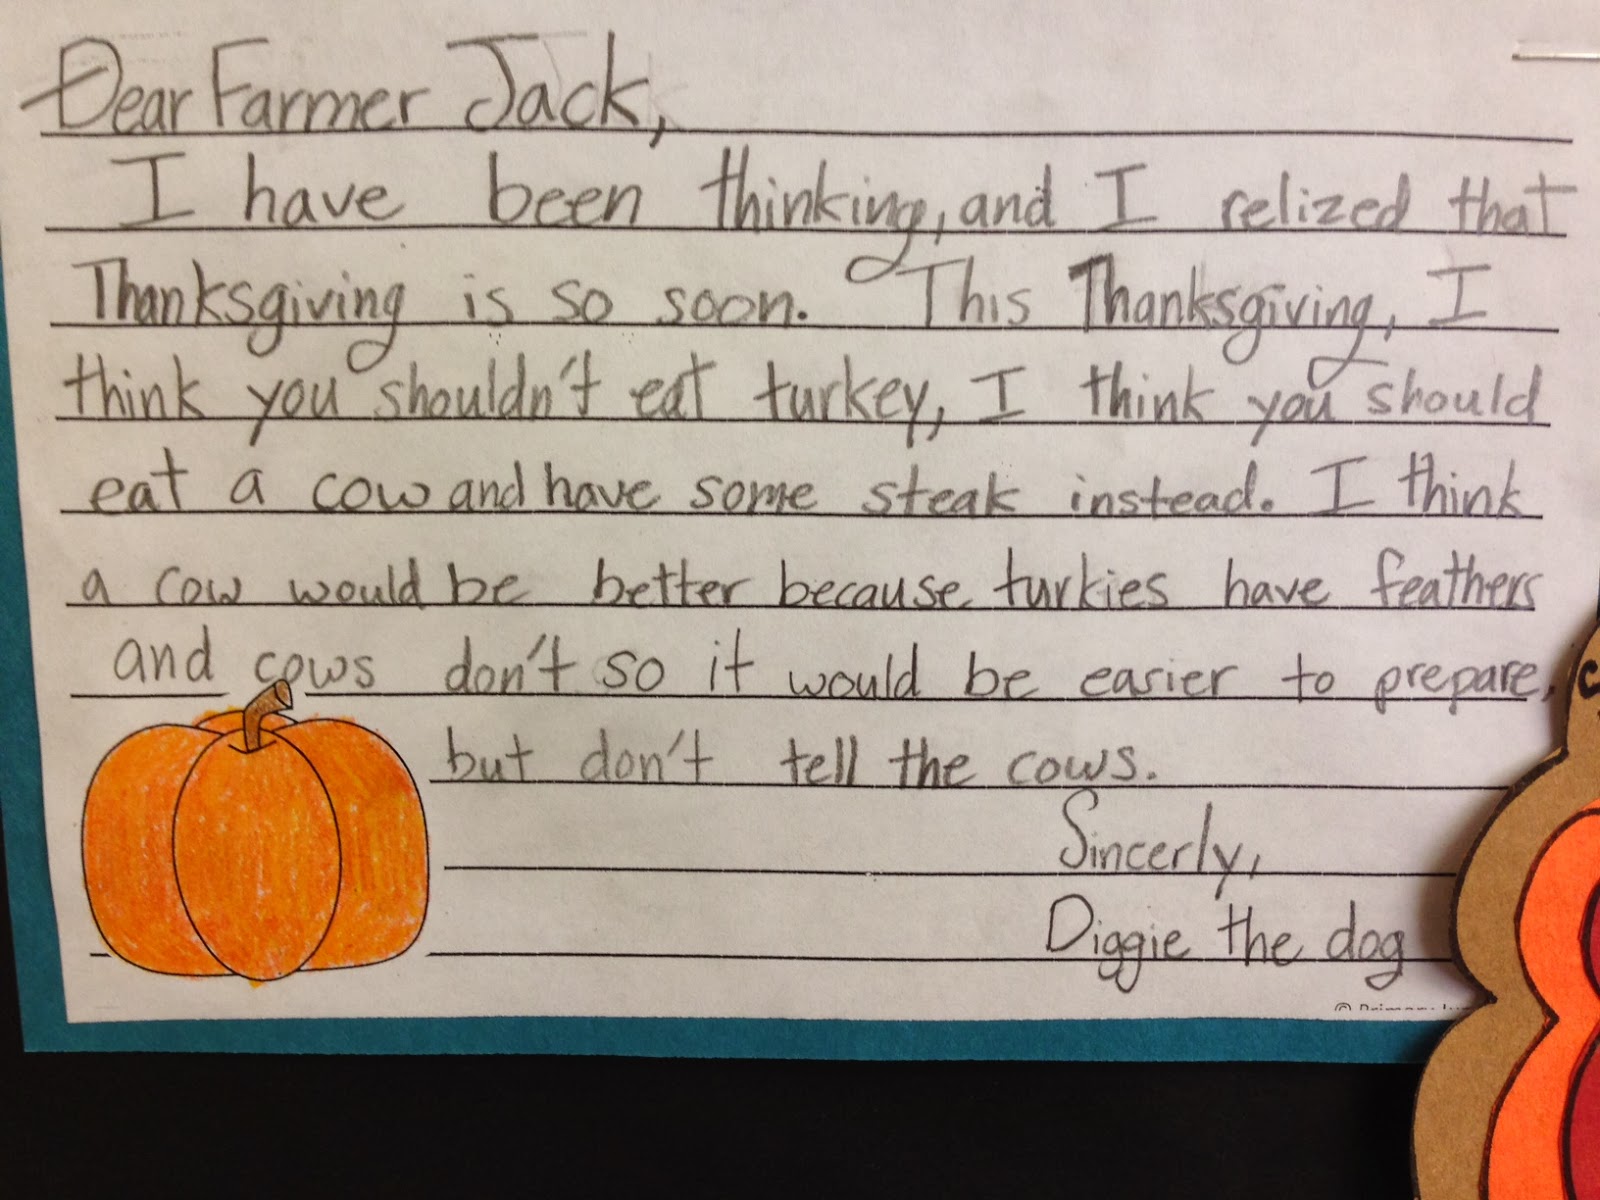 Dear Farmer Jack,
I have been thinking, and I relized that
Thanksgiving is so soon. This Thanksgiving, I
think you shouldn't eat turkey, I think you should
eat a cow and have some steak instead. I think
a cow would be better because turkies have feathers
and cows don't so it would be easier to prepare,
but don't tell the cows.
Sincerly,
Diggie the dog